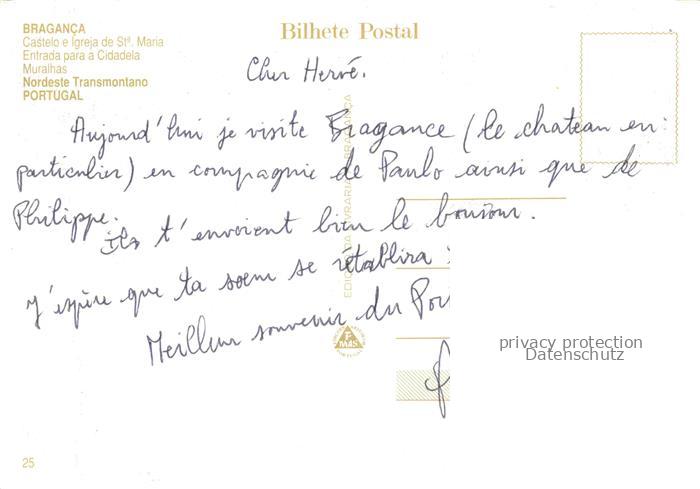 BRAGANÇA
Castelo e Igreja de Stª. Maria
Entrada para a Cidadela
Muralhas
Nordeste Transmontano
PORTUGAL
Bilhete Postal
Cher Hervé.
Aujourd'hui je visite Bragance (le chateau en
particulier) en compagnie de Paulo ainsi que de
Philippe.
Ils t'envoient bien le bonjour.
J'espère que ta soeur se rétablira
Meilleur souvenir du
privacy protection
Datenschutz
25